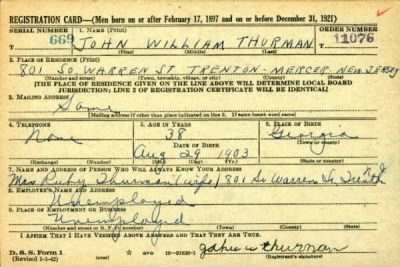 REGISTRATION CARD—(Men born on or after February 17, 1897 and on or before December 31, 1921)
SERIAL NUMBER 1. NAME (Print) ORDER NUMBER
669 JOHN WILLIAM THURMAN 11076
(First) (Middle) (Last)
2. PLACE OF RESIDENCE (Print)
801 SO WARREN ST TRENTON-MERCER-NEW JERSEY
(Number and street) (Town, township, village, or city) (County) (State)
[THE PLACE OF RESIDENCE GIVEN ON THE LINE ABOVE WILL DETERMINE LOCAL BOARD
JURISDICTION; LINE 2 OF REGISTRATION CERTIFICATE WILL BE IDENTICAL]
3. MAILING ADDRESS
Same
[Mailing address if other than place indicated on line 2. If same insert word same]
4. TELEPHONE 5. AGE IN YEARS 6. PLACE OF BIRTH
None 38 Georgia
DATE OF BIRTH (Town or county)
Aug 29 1903
(Exchange) (Number) (Mo.) (Day) (Yr.) (State or country)
7. NAME AND ADDRESS OF PERSON WHO WILL ALWAYS KNOW YOUR ADDRESS
Mrs Ruby Thurman (wife) 801 So Warren St Trenton NJ
8. EMPLOYER'S NAME AND ADDRESS
Unemployed
9. PLACE OF EMPLOYMENT OR BUSINESS
Unemployed
(Number and street or R. F. D. number) (Town) (County) (State)
I AFFIRM THAT I HAVE VERIFIED ABOVE ANSWERS AND THAT THEY ARE TRUE.
D. S. S. Form 1
(Revised 1-1-42) GPO 16-21630-1 John w thurman
(Registrant's signature)